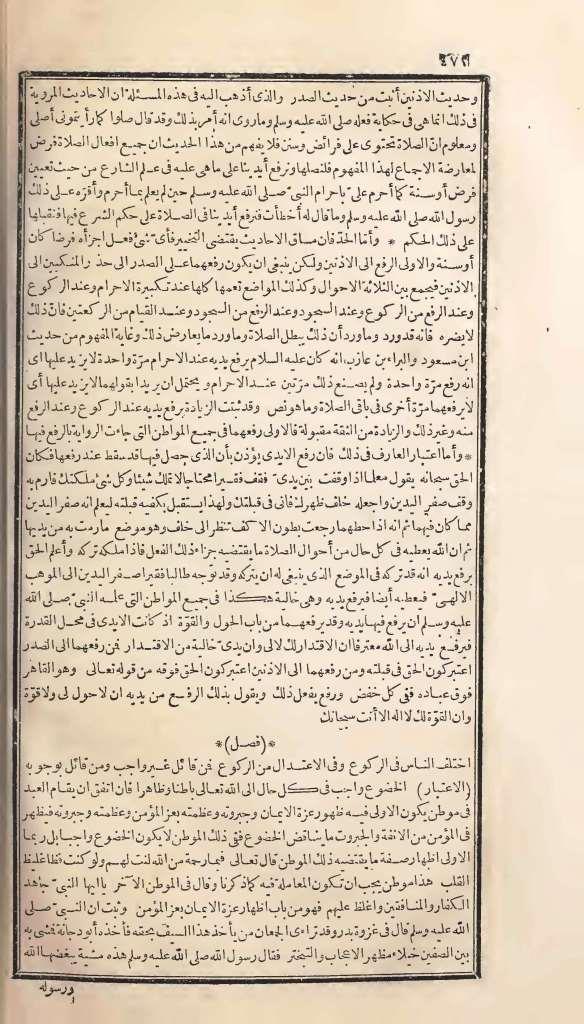 ٤٧٢
وحديث الاذنين أثبت من حديث الصدر والذى أذهب اليه فى هذه المسئلة ان الاحاديث المروية
فى ذلك انما هى فى حكاية فعله صلى الله عليه وسلم وما روى انه أمر بذلك وقد قال صلوا كما رأيتمونى أصلى
ومعلوم انّ الصلاة تحتوى على فرائض وسنن فلا يفهم من هذا الحديث ان جميع افعال الصلاة فرض
لمعارضة الاجماع لهذا المفهوم فلنصلها ونرفع أيدينا على ما هى عليه فى علم الشارع من حيث تعيين
فرض أو سنة كما أحرم علىّ باحرام النبىّ صلى الله عليه وسلم حين لم يعلم بما أحرم وأقرّه على ذلك
رسول الله صلى الله عليه وسلم وما قال له أخطأت فنرفع أيدينا فى الصلاة على حكم الشرع فيها فنقبلها
على ذلك الحكم * وأمّا الحدّ فان مساق الاحاديث يقتضى التخيير فأىّ شئ فعل اجزأه فرضا كان
أو سنة والاولى الرفع الى الاذنين ولكن ينبغى ان يكون رفعهما على الصدر الى حذو المنكبين الى
الاذنين فيجمع بين الثلاثة الاحوال وكذلك المواضع تعمها كلها عند تكبيرة الاحرام وعند الركوع
وعند الرفع من الركوع وعند السجود وعند الرفع من السجود وعند القيام من الركعتين فانّ ذلك
لا يضره فانه قد ورد وما ورد أن ذلك يبطل الصلاة وما ورد ما يعارض ذلك وغاية المفهوم من حديث
ابن مسعود والبراء بن عازب انه كان عليه السلام يرفع يديه عند الاحرام مرّة واحدة لا يزيد عليها اى
انه رفع مرّة واحدة ولم يصنع ذلك مرّتين عند الاحرام ويحتمل ان يريدا بقولهما لا يزيد عليها أى
لا يرفعهما مرّة أخرى فى باقى الصلاة وما هو نص وقد ثبتت الزيادة برفع يديه عند الركوع وعند الرفع
منه وغير ذلك والزيادة من الثقة مقبولة فالاولى رفعهما فى جميع المواطن التى جاءت الرواية بالرفع فيها
* وأما اعتبار العارف فى ذلك فان رفع الايدى يؤذن بأن الذى حصل فيها قد سقط عند رفعها فكان
الحق سبحانه يقول معلما اذا وقفت بين يدىّ فقف فقيرا محتاجا لا تملك شيئا وكل شئ ملكتك فارم به
وقف صفر اليدين واجعله خلف ظهرك فانى فى قبلتك ولهذا يستقبل بكفيه قبلته ليعلم انه صفر اليدين
مما كان فيهما ثم انه اذا حطهما رجعت بطون الاكف تنظر الى خلف وهو موضع ما رمت به من يديها
ثم ان الله يعطيه فى كل حال من أحوال الصلاة ما يقتضيه جزاء ذلك الفعل فاذا ملكه تركه وأعلم الحق
برفع يديه انه قد تركه فى الموضع الذى ينبغى له ان يتركه وقد توجه طالبا فقيرا صفر اليدين الى الموهب
الالهىّ فيعطيه أيضا فيرفع يديه وهى خالية هكذا فى جميع المواطن التى علمه النبىّ صلى الله
عليه وسلم ان يرفع فيها يديه وقد يرفعهما من باب الحول والقوّة اذ كانت الايدى فى محل القدرة
فيرفع يديه الى الله معترفا ان الاقتدار لك لا لى وان يدىّ خالية من الاقتدار فمن رفعهما الى الصدر
اعتبر كون الحق فى قبلته ومن رفعهما الى الاذنين اعتبر كون الحق فوقه من قوله تعالى وهو القاهر
فوق عباده فنى كل خفض ورفع يفعل ذلك ويقول بذلك الرفع من يديه ان لا حول لى ولا قوّة
وان القوّة لك لا اله الا أنت سبحانك
*(فصل)*
اختلف الناس فى الركوع وفى الاعتدال من الركوع فمن قائل غير واجب ومن قائل بوجوبه
(الاعتبار) الخضوع واجب فى كل حال الى الله تعالى باطنا وظاهرا فان اتفق ان يقام العبد
فى موطن يكون الاولى فيه ظهور عزة الايمان وجبروته وعظمته بعز المؤمن وعظمته وجبروته فيظهر
فى المؤمن من الانفة والجبروت ما يناقض الخضوع ففى ذلك الموطن لا يكون الخضوع واجبا بل ربما
الاولى اظهار صفة ما يقتضيه ذلك الموطن قال تعالى فبما رحمة من الله لنت لهم ولو كنت فظا غليظ
القلب هذا موطن يجب ان تكون المعاملة فيه كما ذكرنا وقال فى الموطن الآخر يا ايها النبىّ جاهد
الكفار والمنافقين واغلظ عليهم فهو من باب اظهار عزة الايمان بعز المؤمن وثبت ان النبىّ صلى
الله عليه وسلم قال فى غزوة بدر وقد تراءى الجمعان من يأخذ هذا السيف بحقه فأخذه أبو دجانة فمشى به
بين الصفين خيلاء مظهر الاعجاب والتبختر فقال رسول الله صلى الله عليه وسلم هذه مشية يبغضها الله
ورسوله